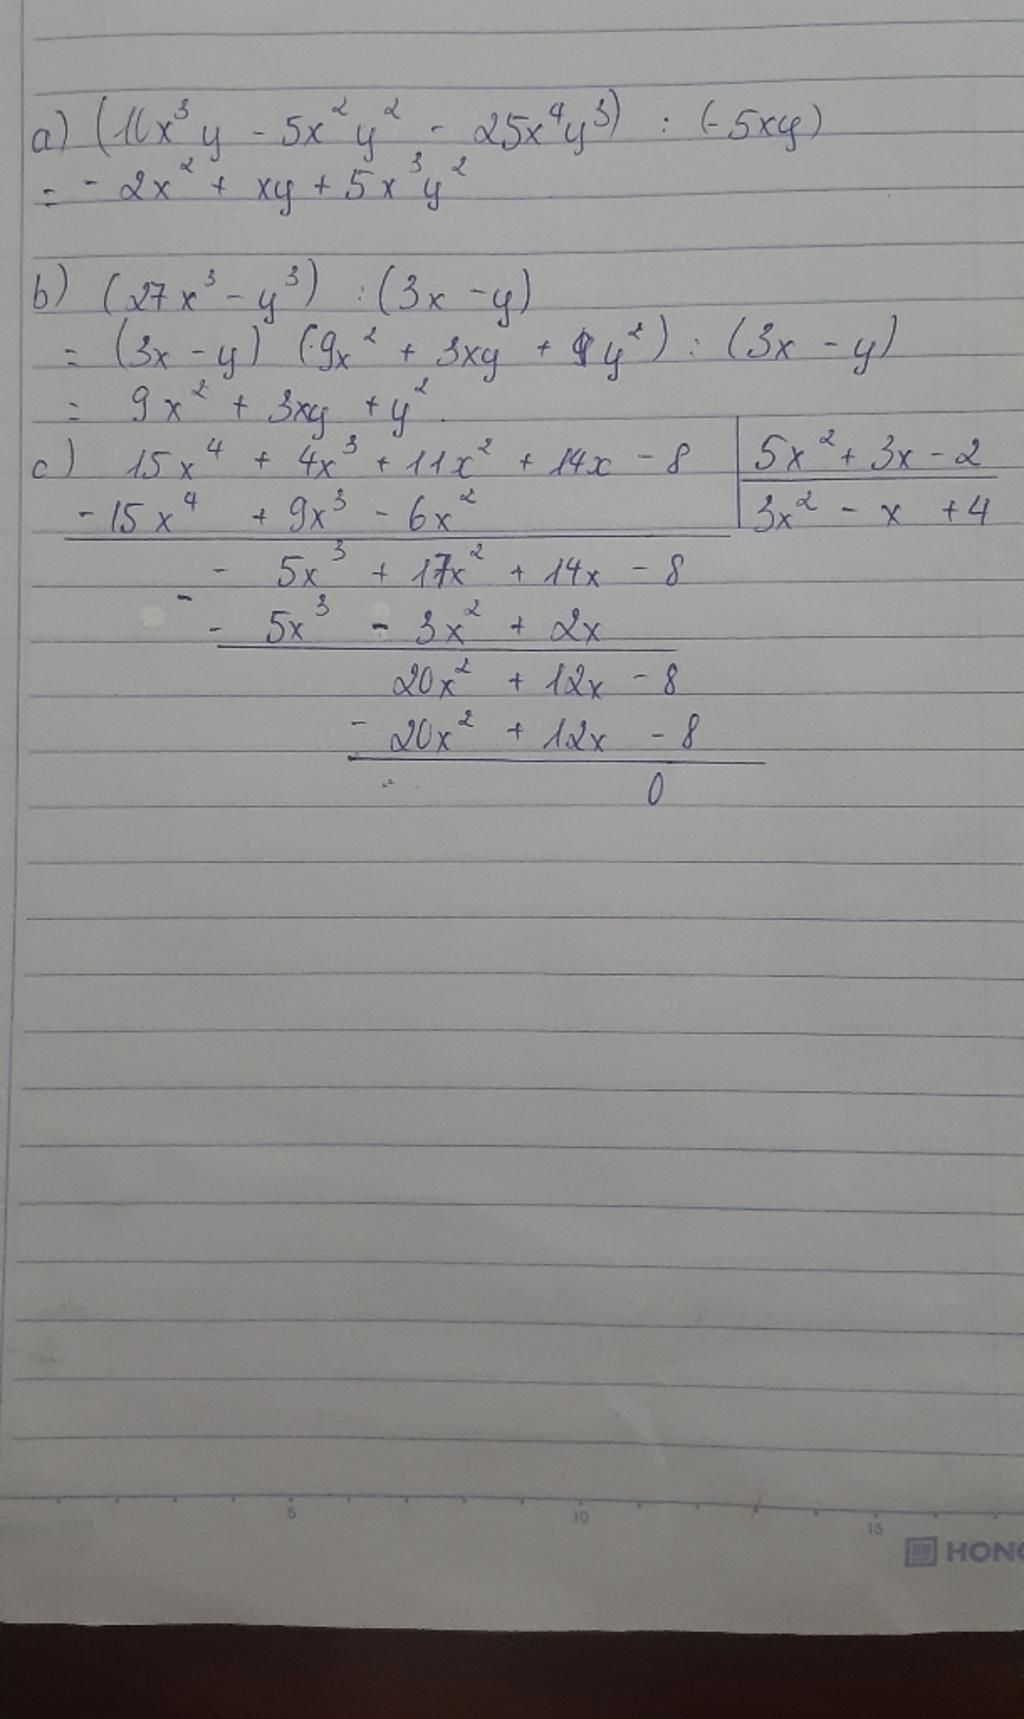 a) (10x³y - 5x²y² - 25x⁴y³) : (-5xy)
= - 2x² + xy + 5x³y²
b) (27x³ - y³) : (3x - y)
= (3x - y) (9x² + 3xy + y²) : (3x - y)
= 9x² + 3xy + y²
c) 15x⁴ + 4x³ + 11x² + 14x - 8 | 5x² + 3x - 2
- 15x⁴ + 9x³ - 6x² | 3x² - x + 4
- 5x³ + 17x² + 14x - 8
-
- 5x³ - 3x² + 2x
20x² + 12x - 8
- 20x² + 12x - 8
0
5 10 15
HONG